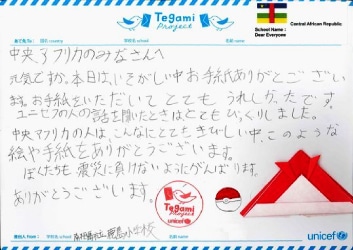 あて先 To : 国名 country 学校名 school 名前 name
Tegami
Project
Central African Republic
School Name :
Dear Everyone
中央アフリカのみなさんへ
元気ですか。本日は、いそがしい中お手紙ありがとうござい
ます。お手紙をいただいてとてもうれしかったです。
ユニセフの人の話を聞いたときはとてもびっくりしました。
中央アフリカの人は、こんなにとてもきびしい中、このような
絵や手紙をありがとうございます。
ぼくたちも震災に負けないようにがんばります。
ありがとうございます。
Tegami
Project
unicef
差出人 From : 学校名 school 小学校 名前 name
unicef